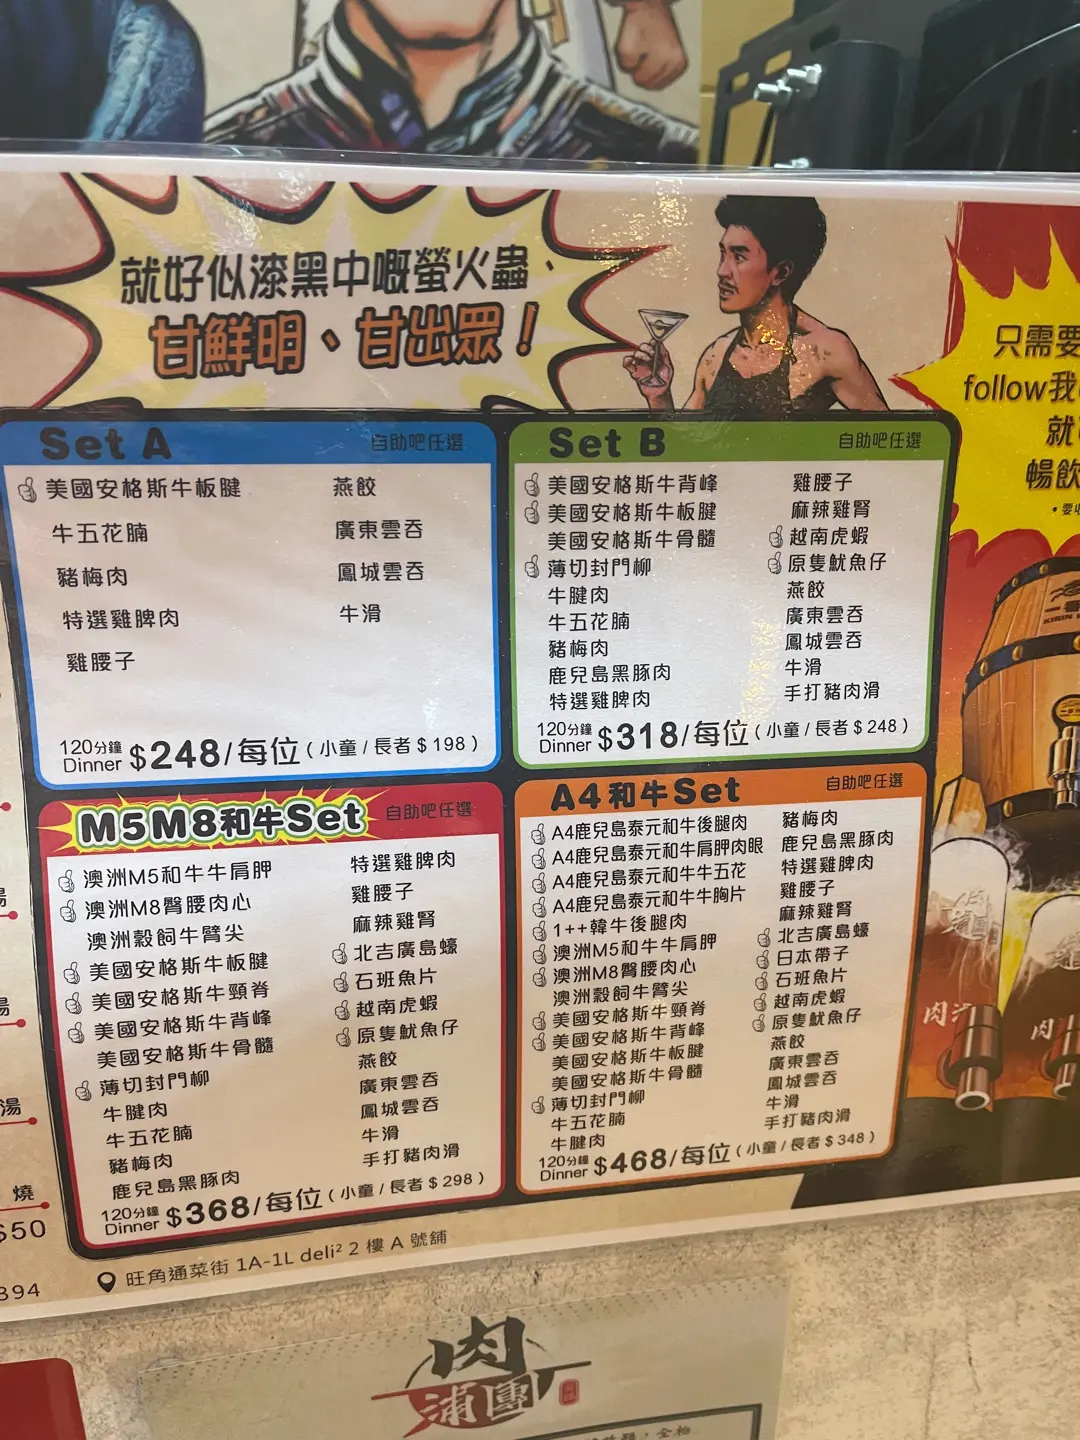 就好似漆黑中嘅螢火蟲、
甘鮮明、甘出眾！
只需要
follow我
就
暢飲
Set A 自助吧任選
美國安格斯牛板腱
牛五花腩
豬梅肉
特選雞脾肉
雞腰子
燕餃
廣東雲吞
鳳城雲吞
牛滑
120分鐘
Dinner $248/每位(小童/長者$198)
Set B 自助吧任選
美國安格斯牛背峰
美國安格斯牛板腱
美國安格斯牛骨髓
薄切封門柳
牛腱肉
牛五花腩
豬梅肉
鹿兒島黑豚肉
特選雞脾肉
雞腰子
麻辣雞腎
越南虎蝦
原隻魷魚仔
燕餃
廣東雲吞
鳳城雲吞
牛滑
手打豬肉滑
120分鐘
Dinner $318/每位(小童/長者$248)
M5M8和牛Set 自助吧任選
澳洲M5和牛牛肩胛
澳洲M8臀腰肉心
澳洲穀飼牛臂尖
美國安格斯牛板腱
美國安格斯牛頸脊
美國安格斯牛背峰
美國安格斯牛骨髓
薄切封門柳
牛腱肉
牛五花腩
豬梅肉
鹿兒島黑豚肉
特選雞脾肉
雞腰子
麻辣雞腎
北吉廣島蠔
石班魚片
越南虎蝦
原隻魷魚仔
燕餃
廣東雲吞
鳳城雲吞
牛滑
手打豬肉滑
120分鐘
Dinner $368/每位(小童/長者$298)
A4和牛Set 自助吧任選
A4鹿兒島泰元和牛後腿肉
A4鹿兒島泰元和牛肩胛肉眼
A4鹿兒島泰元和牛牛五花
A4鹿兒島泰元和牛牛胸片
1++韓牛後腿肉
澳洲M5和牛牛肩胛
澳洲M8臀腰肉心
澳洲穀飼牛臂尖
美國安格斯牛頸脊
美國安格斯牛背峰
美國安格斯牛板腱
美國安格斯牛骨髓
薄切封門柳
牛五花腩
牛腱肉
豬梅肉
鹿兒島黑豚肉
特選雞脾肉
雞腰子
麻辣雞腎
北吉廣島蠔
日本帶子
石班魚片
越南虎蝦
原隻魷魚仔
燕餃
廣東雲吞
鳳城雲吞
牛滑
手打豬肉滑
120分鐘
Dinner $468/每位(小童/長者$348)
湯
燒
$50
394
旺角通菜街 1A-1L deli² 2 樓 A 號舖
肉
蒲團